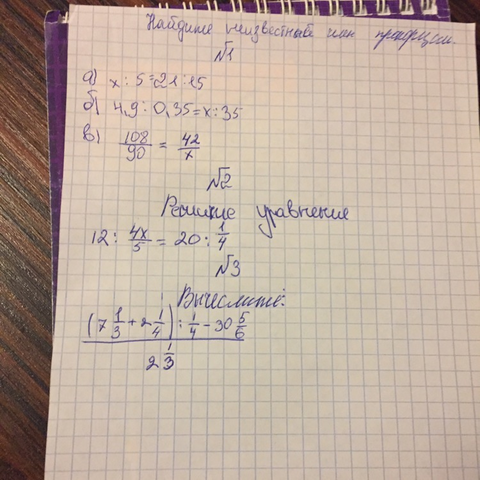 Найдите неизвестный член пропорции.
№1
а) x : 5 = 21 : 15
б) 4,9 : 0,35 = x : 35
в) 108/90 = 42/x
№2
Решите уравнение
12 : 4x/5 = 20 : 1/4
№3
Вычеслите:
(7 1/3 + 2 1/4) : 1/4 - 30 5/6
2 1/3